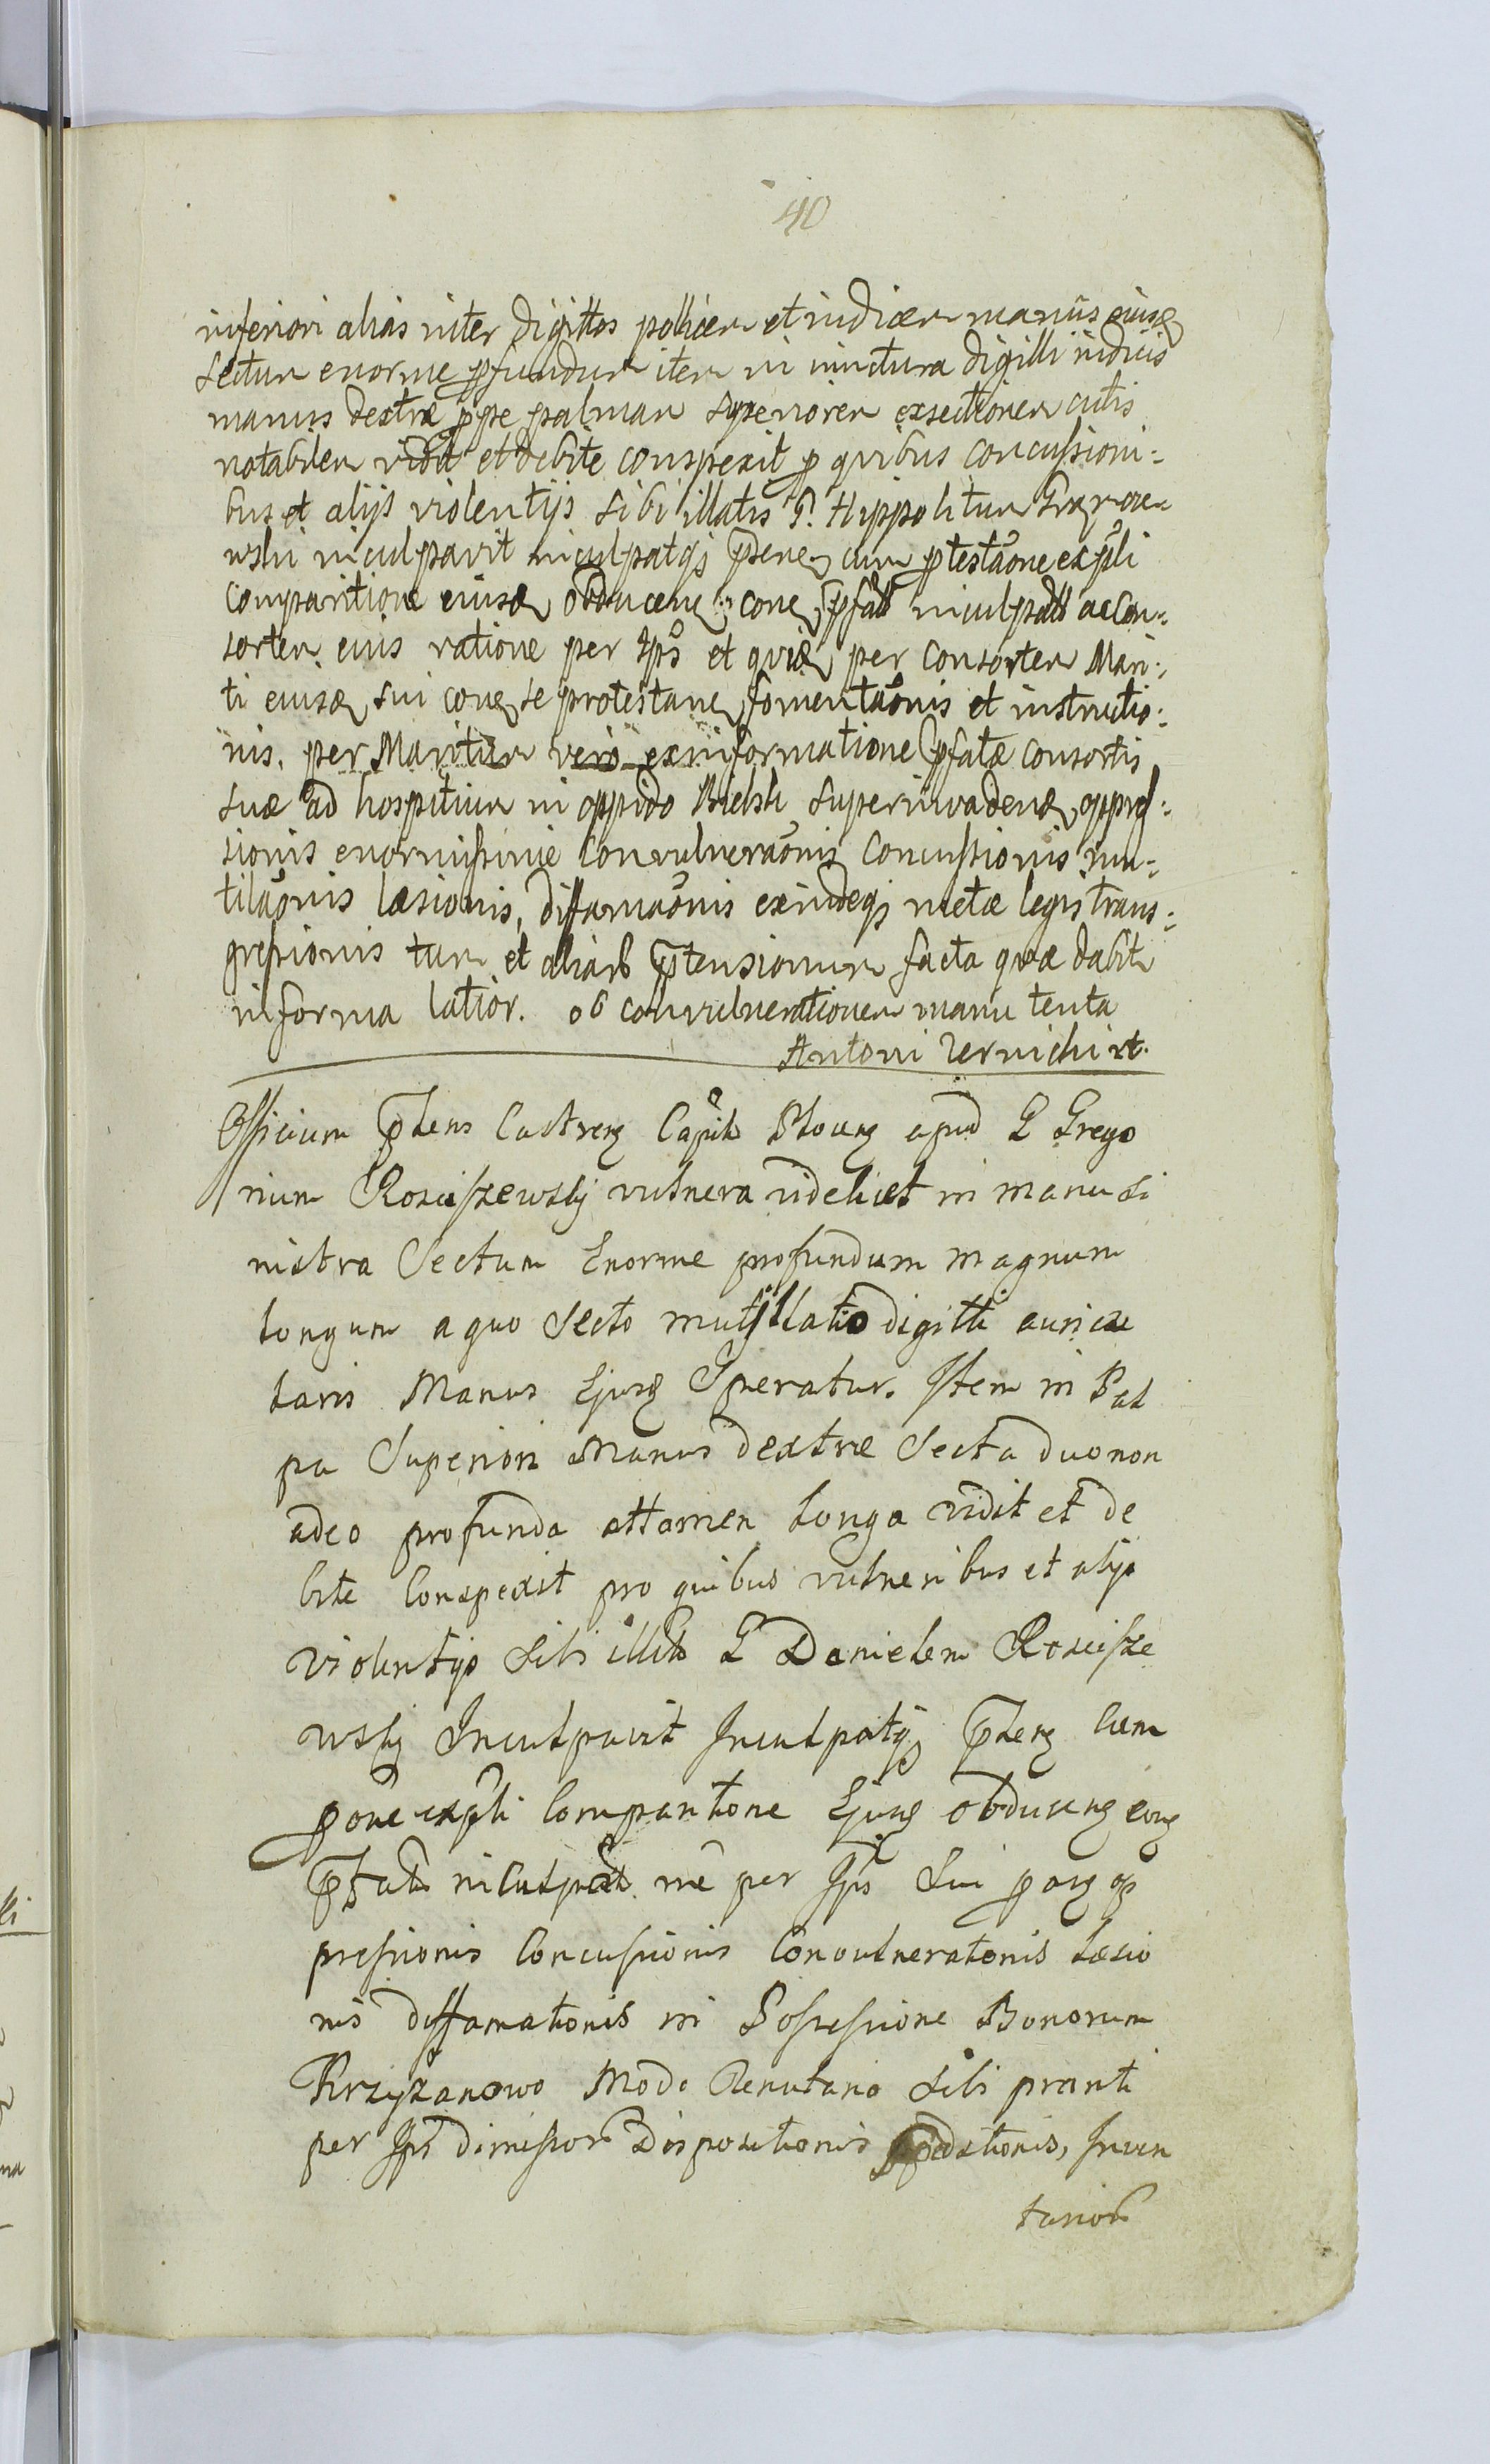 40
inferiori alias inter digittos pollicem et indicem manus eiusd
sectum enorme pfundum item in iunctura digitti indicis
manus dextræ ppe palmam superiorem exsectionem cutis
notabilem vidit et debite conspexit p quibus concussioni-
bus et alijs violentijs sibi illatis G. Hippolitum
wski inculpavit inculpatqj pdene cum ptestaone expsli
comparitione eiusd obducene cone pfatt inculpatt ac con-
sortem eius ratione per Ips et quid per consortem Mari-
ti eiusd sui cone se protestane fomentaonis et instructio-
nis, per Maritum vero ex informatione pfatæ consortis
suæ ad hospitium in oppido Bielsk superinvadend oppres-
sionis enormissimæ convulneraonis concussionis mu-
tilaonis læsionis, diffamaonis exindeqj metæ legis trans-
gressionis tum et aliarb ptensionum facta quæ dabit
in forma latior. ob convulnerationem manu tenta
Antoni
Officium pdens Castrens Capit Ploceng apud G Grego
rium Rosciszewskj vulnera videlicet in manu si
nistra Sectum Enorme profundum magnum
longum a quo Secto mutillatio digitti auricu
laris Manus Ejusd Speratur. Item in Pal
pa Superiori Manus dextræ Secta duo non
adeo profunda attamen longa vidit et de
bite Conspexit pro quibus vulneribus et alijs
violentijs Sibi illat G Danielem Roscisze
wskj Inculpavit Inculpatqj pdeng cum
pone expsli Comparitione Ejusd obduceng cong
pfatt inculpatt rne per Ips Sui pong op
pressionis Concussionis Convulnerationis læsio
nis diffamationis in Possessione Bonorum
Krzyżanowo Modo Tenutario Sibi pranti
per Ips dimissor Dispositionis, Inven
tarior